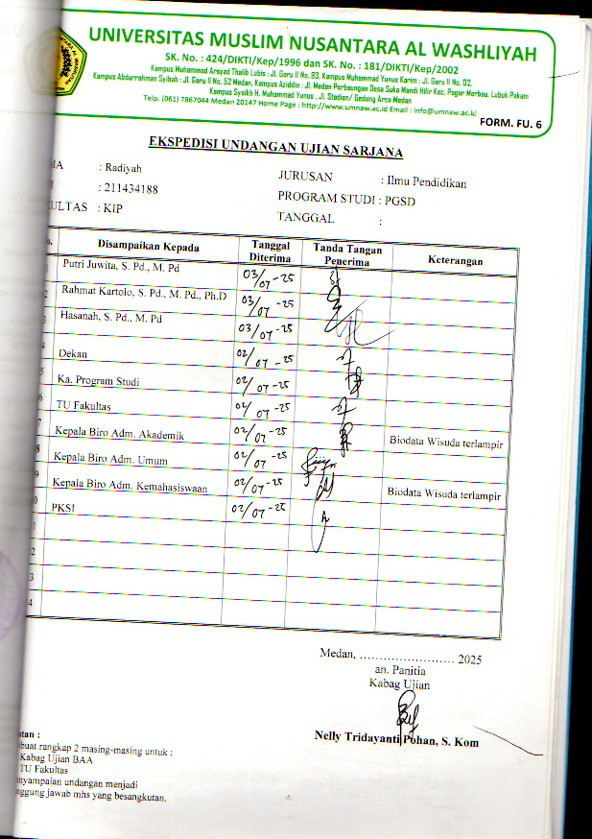 UNIVERSITAS MUSLIM NUSANTARA AL WASHLIYAH
SK. No. : 424/DIKTI/Kep/1996 dan SK. No. : 181/DIKTI/Kep/2002
Kampus Muhammad Arsyad Thalib Lubis : Jl. Garu II No. 93, Kampus Muhammad Yunus Karim : Jl. Garu II No. 02,
Kampus Abdurrahman Syihab : Jl. Garu II No. 52 Medan, Kampus Aziddin : Jl. Medan Perbaungan Desa Suka Mandi Hilir Kec. Pagar Merbau, Lubuk Pakam
Kampus Syeikh H. Muhammad Yunus, Jl. Stadion/ Gedung Arca Medan
Telp. (061) 7867044 Medan 20147 Home Page : http://www.umnaw.ac.id Email : info@umnaw.ac.id
FORM. FU. 6
EKSPEDISI UNDANGAN UJIAN SARJANA
MA : Radiyah
: 211434188
ULTAS : KIP
JURUSAN : Ilmu Pendidikan
PROGRAM STUDI : PGSD
TANGGAL :
Disampaikan Kepada Tanggal Diterima Tanda Tangan Penerima Keterangan
Putri Juwita, S. Pd., M. Pd 03/07-25
Rahmat Kartolo, S. Pd., M. Pd., Ph.D 03/07-25
Hasanah, S. Pd., M. Pd 03/07-25
Dekan 02/07-25
5 Ka. Program Studi 02/07-25
6 TU Fakultas 02/07-25
7 Kepala Biro Adm. Akademik 02/07-25 Biodata Wisuda terlampir
8 Kepala Biro Adm. Umum 02/07-25
9 Kepala Biro Adm. Kemahasiswaan 02/07-25 Biodata Wisuda terlampir
0 PKSI 02/07-25
1
2
3
4
Medan, ........................ 2025
an. Panitia
Kabag Ujian
Nelly Tridayanti Pohan, S. Kom
atan :
buat rangkap 2 masing-masing untuk :
Kabag Ujian BAA
TU Fakultas
nyampaian undangan menjadi
nggung jawab mhs yang besangkutan.